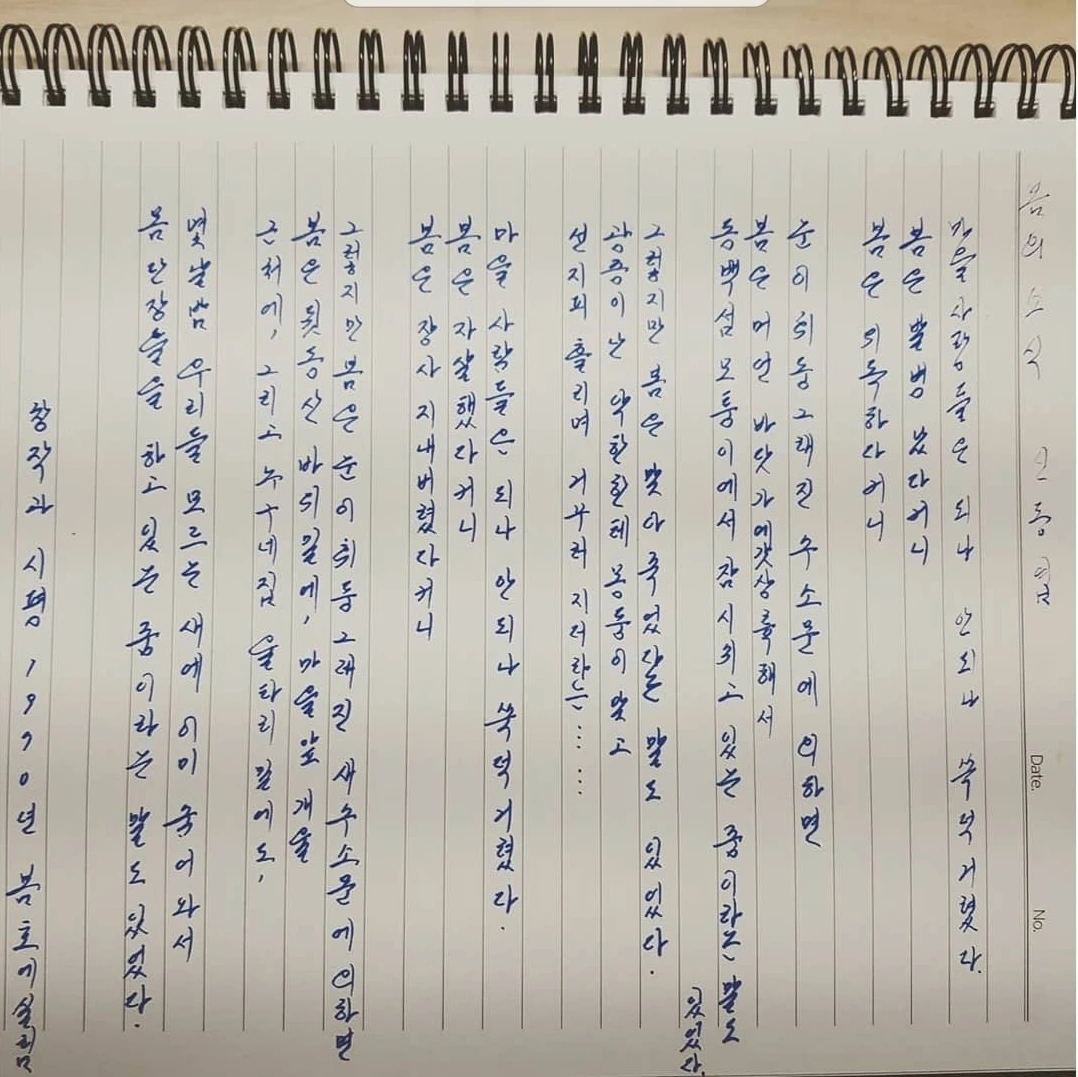 봄의 소식 신동엽
마을 사람들은 되나 안되나 쑥덕거렸다.
봄은 발병 났다커니
봄은 위독하다커니
눈이 휘둥그래진 수소문에 의하면
봄은 머언 바닷가에 갓 상륙해서
동백섬 모퉁이에서 잠시 쉬고 있는 중이라는 말도
있었다.
그렇지만 봄은 맞아 죽었다는 말도 있었다.
광증이 난 악한한테 몽둥이 맞고
선지피 흘리며 거꾸러 지더라는......
마을 사람들은 되나 안되나 쑥덕거렸다.
봄은 자살했다커니
봄은 장사 지내버렸다커니
그렇지만 봄은 눈이 휘둥그래진 새 수소문에 의하면
봄은 뒷동산 바위 밑에, 마을 앞 개울
근처에, 그리고 누구네 집 울타리 밑에도,
몇날밤 우리들 모르는 새에 이미 숨어 와서
봄 단장들을 하고 있는 중이라는 말도 있었다.
창작과 시평 1990년 봄호에 실림
Date.
No.